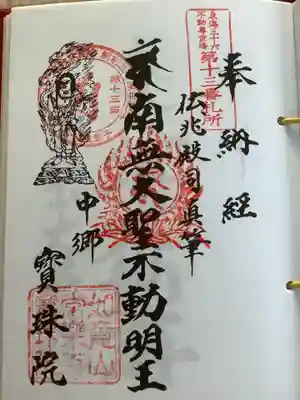 奉納経
東海三十六
不動尊霊場
第十三番札所
仏兆殿司真筆
南無大聖不動明王
第十三番
中郷
寳珠院